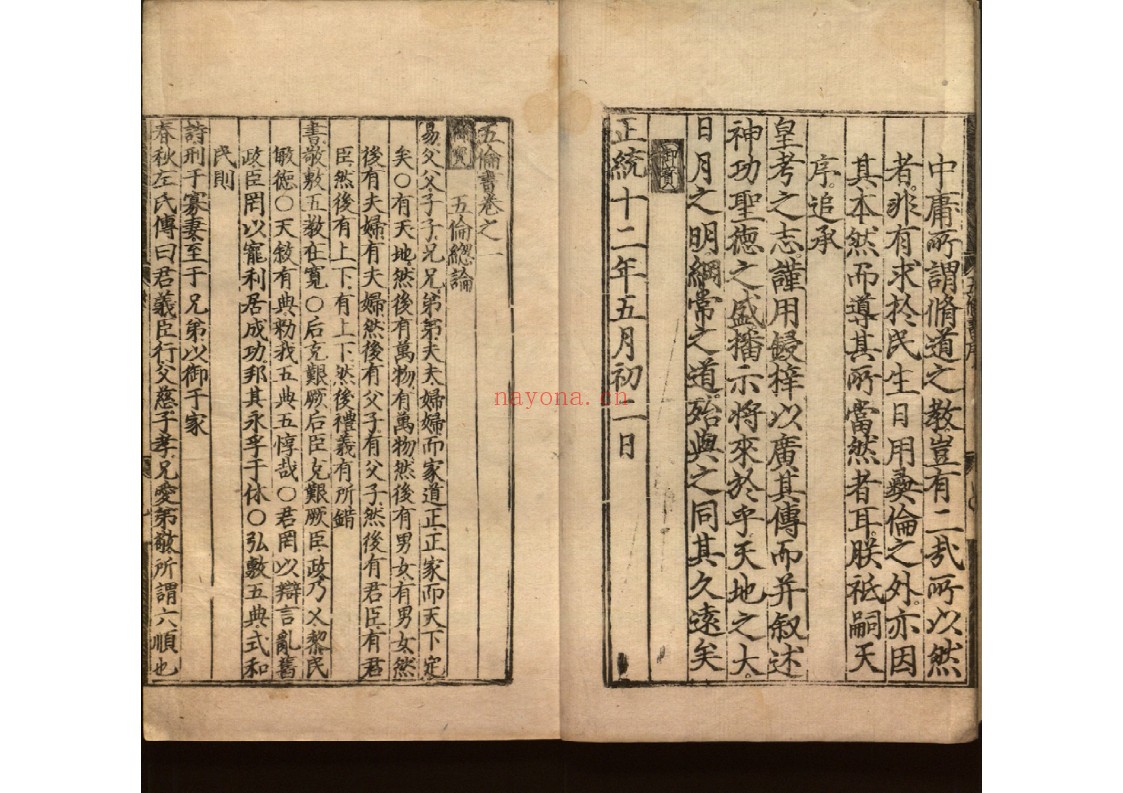 中庸所謂脩道之教豈有二哉所以然
者非有求於民生日用彝倫之外亦因
其本然而導其所當然者耳朕祗嗣天
序追承
皇考之志謹用鋟梓以廣其傳而并叙述
神功聖德之盛播示將來於乎天地之大
日月之明綱常之道殆與之同其久遠矣
御寳
正統十二年五月初二日
五倫書卷之一
五倫總論
易父父子子兄兄弟弟夫夫婦婦而家道正正家而天下定
矣○有天地然後有萬物有萬物然後有男女有男女然
後有夫婦有夫婦然後有父子有父子然後有君臣有君
臣然後有上下有上下然後禮義有所錯
書敬敷五教在寬○后克艱厥后臣克艱厥臣政乃乂黎民
敏德○天敘有典勑我五典五惇哉○君罔以辯言亂舊
政臣罔以寵利居成功邦其永孚于休○弘敷五典式和
民則
詩刑于寡妻至于兄弟以御于家
春秋左氏傳曰君義臣行父慈子孝兄愛弟敬所謂六順也
nayona.cn